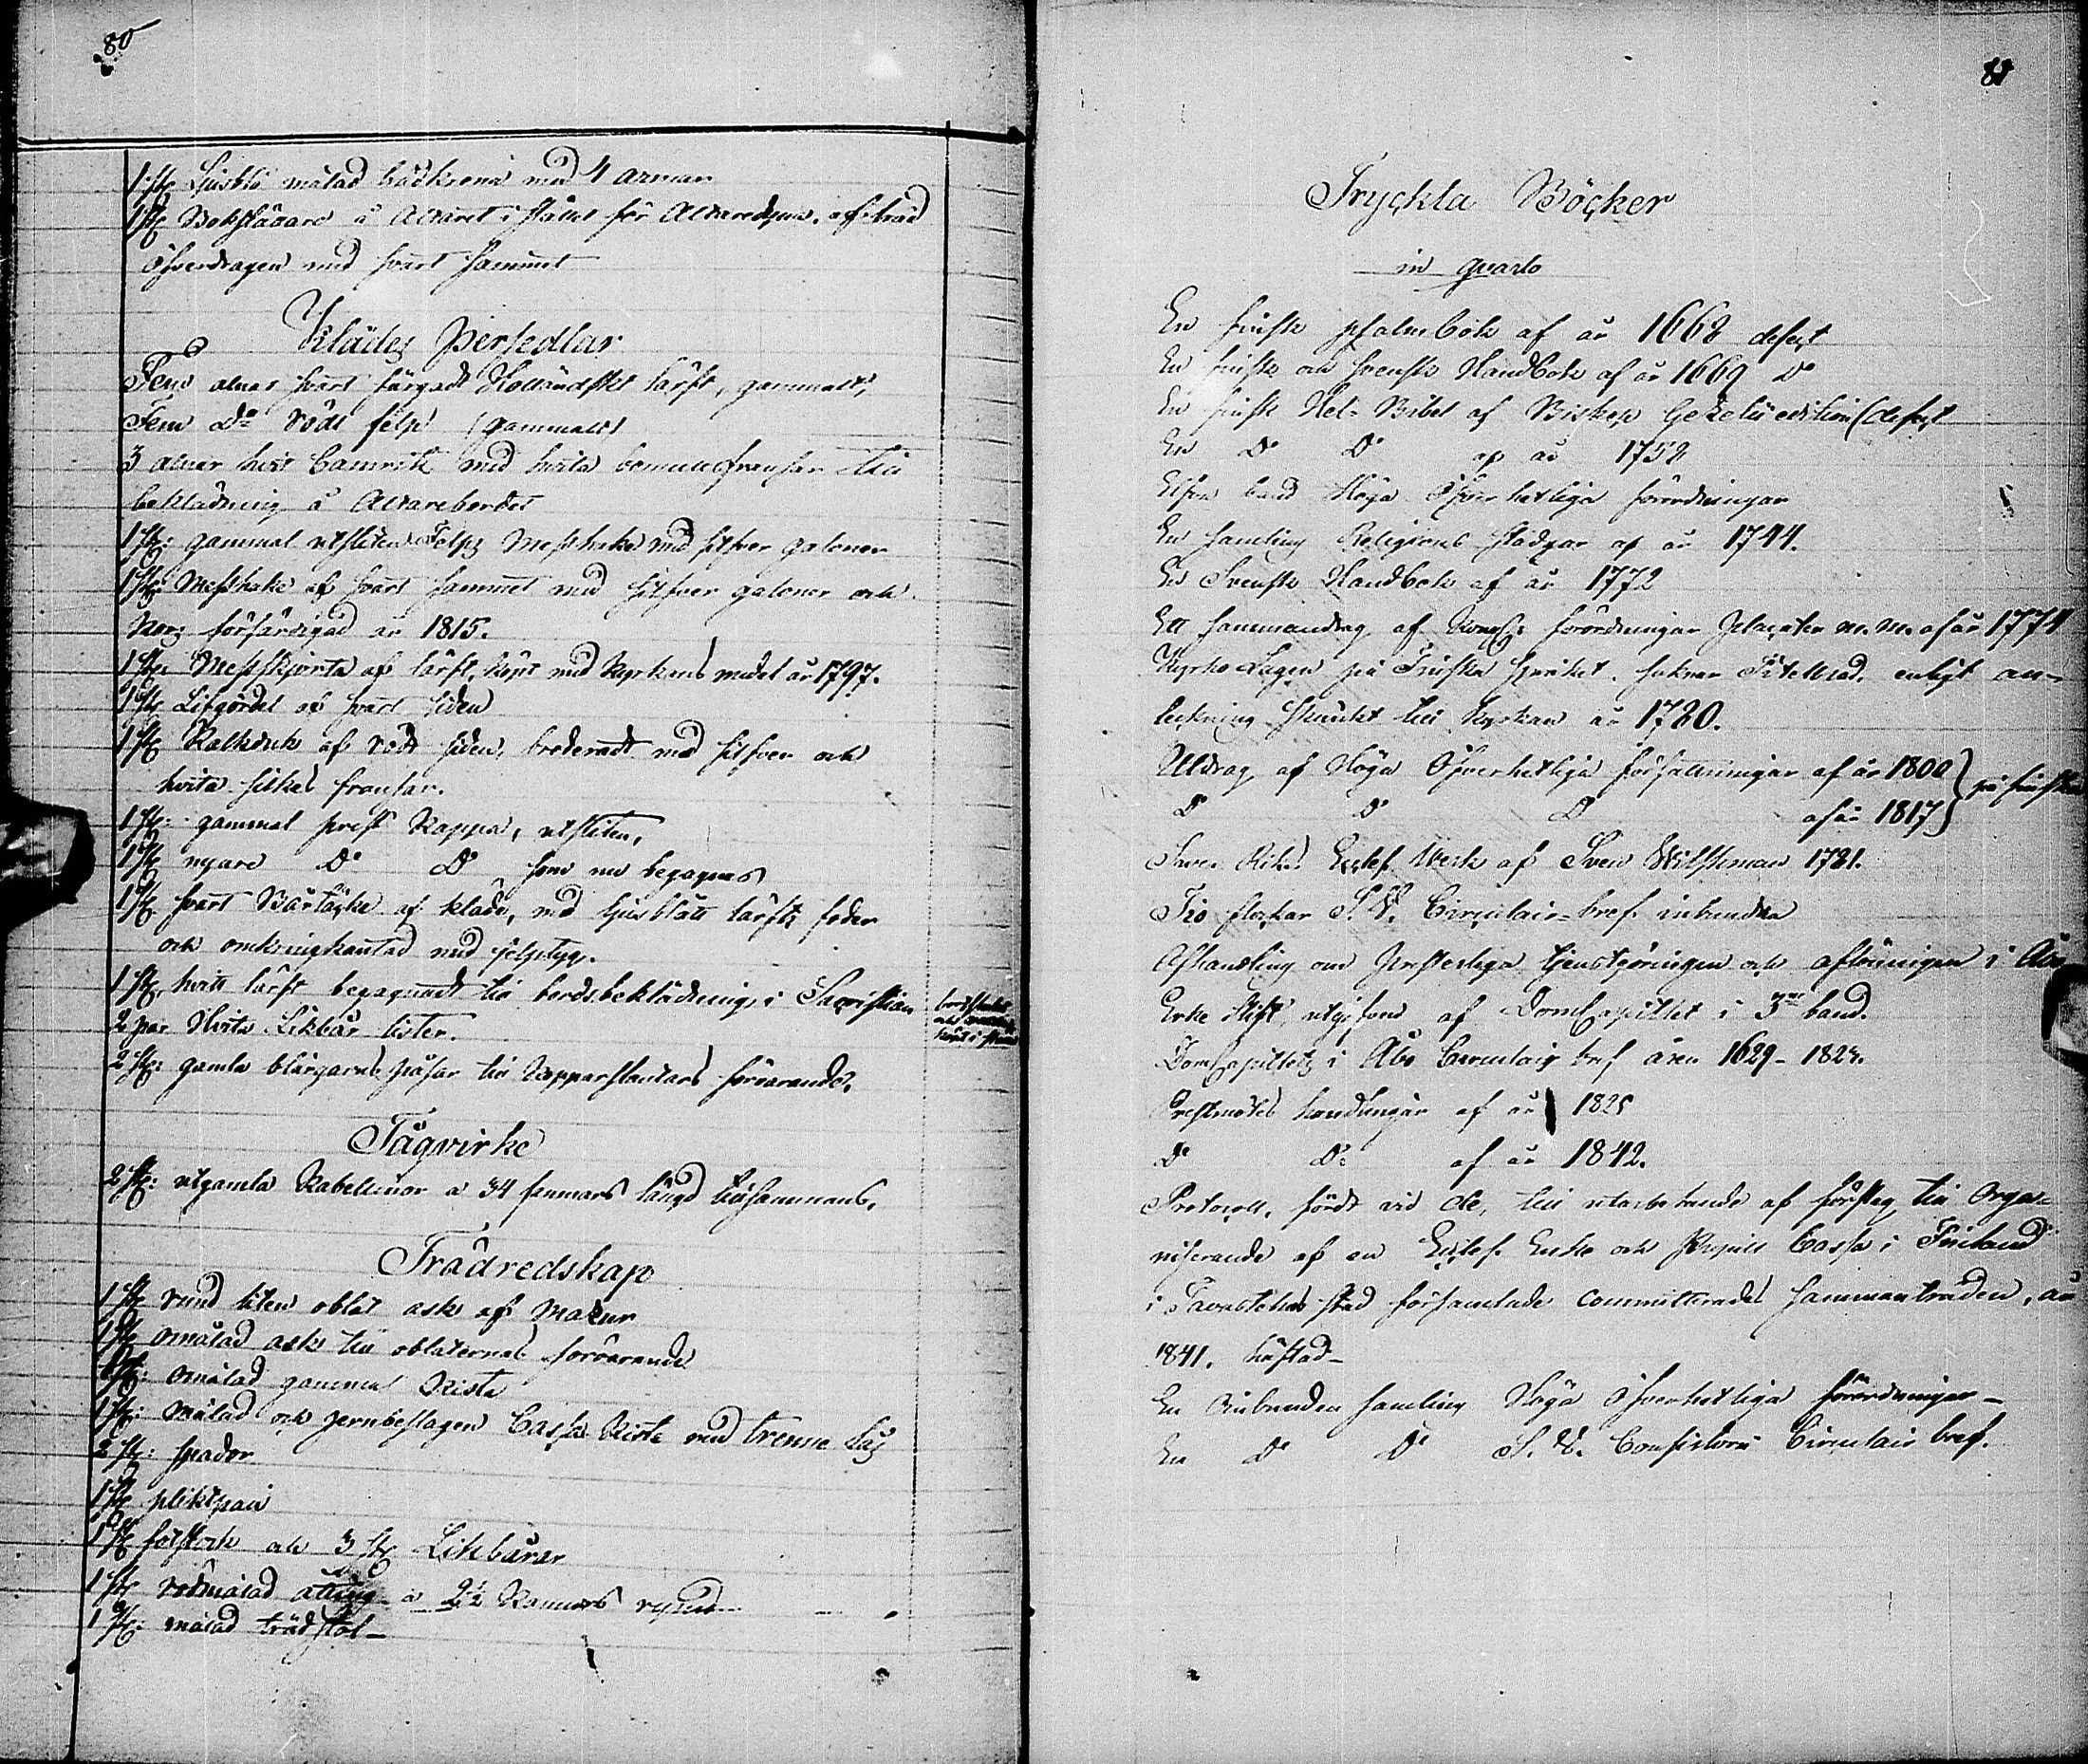 80
1 st. Ljusblå målad med 4 armar
1 st. Bokställare å Altaret i stället för Altaredyna, af träd
öfverdragen med svart sammet
Klädes persedlar
Fem alnar svart färgadt Holländskt lärft, gammalt,
Fem Do rödt felp (gammalt)
3 alnar hvit Camrik med hvita bomullsfransar till
beklädning å Altarebordet
1 st: gammal utsliten Felps Messhake med silfver galoner
1 st: Messhake af svart sammet med silfver galoner och
Kors förfärdigad år 1815.
1 st. Messkjorta af lärft, köpt med Kyrkans medel år 1797.
1 st. Lifgördel af svart siden
1 st. Kalkduk af rödt siden, broderadt med silfver och
hvita silkes fransar.
1 st: gammal prest Kappa, utsliten,
1 st. nyare Do Do som nu begagnas
1 st. svart Bårtäcke af kläde, med ljusblått lärfts foder
och omkringkantad med felptyg.
1 st. hvitt lärft begagnadt till bordsbeklädning i Sacristian
2 par Hvita Likbår lister.
2 st: gamla blårgarns påsar till Kopparslantars förvarande.
Tågvirke
2 st: utgamla Kabellinor a 34 famnars längd tillsammans.
Trädredskap
1 st. rund liten oblat ask af Masur
1 st. omålad ask till oblaternas förvarande
1 st: omålad gammal Kista
1 st: målad och jernbeslagen Cassa Kista med trenne Lås
2 st: spador
1 st. pliktpall
1 st. fotstock och 3 st. Likbårar
1 st. rödmålad åttring a 2½ Kannors rymd
1 st: målad trädstol
81
Tryckta Böcker
in quarto
En finsk psalmbok af år 1668 defect
En finsk och svensk Handbok af år 1669 Do
En finsk Hel. Bibel af Biskop Gezelii edition (defect
En Do Do af år 1758
band Höga Öfverhetliga förordningar
En samling Religions stadgar af år 1744.
En Svensk Handbok af år 1772
Ett sammandrag af förordningar Placater m. m. af år 1774
Kyrko Lagen på Finska språket, saknar Titelblad, enligt an-
teckning skänkt till kyrkan år 1780.
Utdrag af Höga Öfverhetliga författningar af år 1800 } på finska
Do Do Do af år 1817
Svea Rikes Eccles. Werk af Sven Wilskman 1781.
Tio stockar S. V. Circulair-bref inbundna
Afhandling om Presterliga tjenstgöringen och aflöningen i Åbo
Erke Stift, utgifven af DomCapitlet i 3ne band.
DomCapitlets i Åbo Circulair bref åren 1629-1828.
Prestmötes handlingar af år 1825
Do Do af år 1842.
Protocoll, fördt vid de, till utarbetande af förslag till Orga-
niserande af en Eccles. Enke och Pupill Cassa i Finland
i Tavastehus stad församlade Committerades sammanträden, år
1841. häftad-
En Oinbunden samling Höga Öfverhetliga förordningar-
En Do Do S. V. Consistorii Circulair bref.